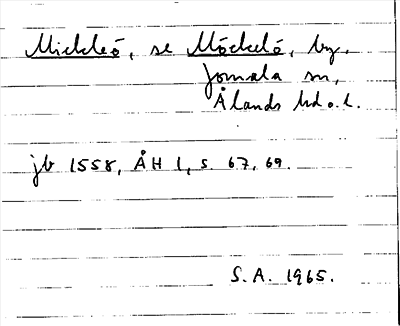 Mickleö, se Möckelö, by,
Jomala sn,
Ålands hd o. l.
jb 1558, ÅH 1, s. 67, 69.
S.A. 1965.